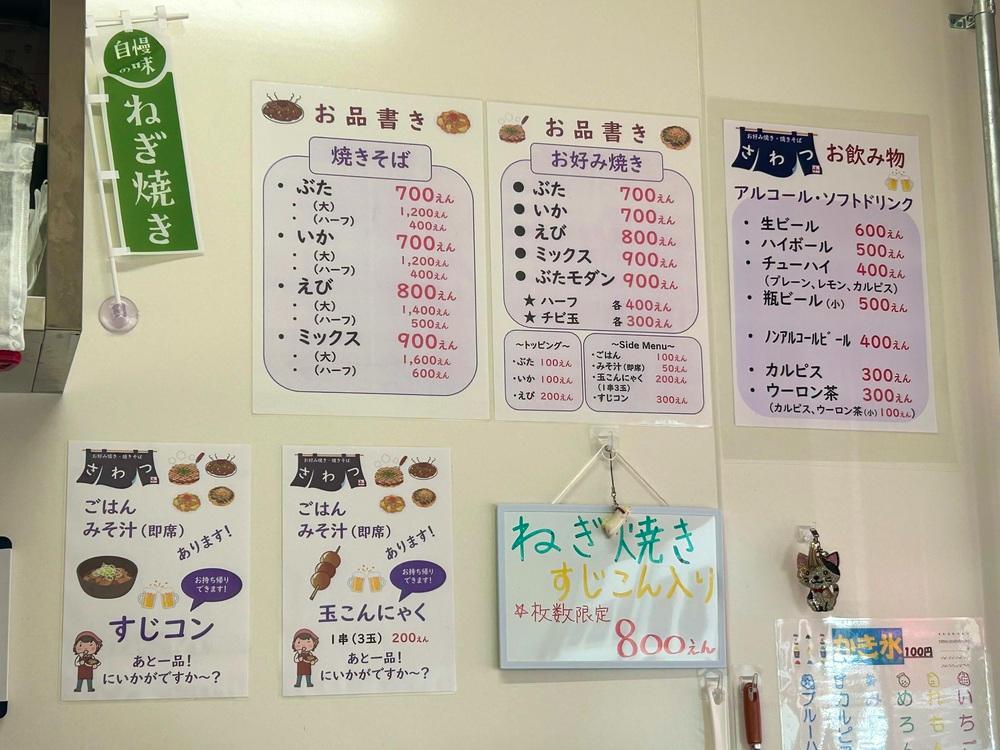 自慢
の味
ねぎ焼き
お品書き
焼きそば
・ぶた 700えん
・(大) 1,200えん
・(ハーフ) 400えん
・いか 700えん
・(大) 1,200えん
・(ハーフ) 400えん
・えび 800えん
・(大) 1,400えん
・(ハーフ) 500えん
・ミックス 900えん
・(大) 1,600えん
・(ハーフ) 600えん
お品書き
お好み焼き
● ぶた 700えん
● いか 700えん
● えび 800えん
● ミックス 900えん
● ぶたモダン 900えん
★ ハーフ 各 400えん
★ チビ玉 各 300えん
~トッピング~
・ぶた 100えん
・いか 100えん
・えび 200えん
~Side Menu~
・ごはん 100えん
・みそ汁(即席) 50えん
・玉こんにゃく 200えん
(1串3玉)
・すじコン 300えん
お好み焼き・焼きそば
さわつ
お飲み物
アルコール・ソフトドリンク
・生ビール 600えん
・ハイボール 500えん
・チューハイ 400えん
(プレーン、レモン、カルピス)
・瓶ビール(小) 500えん
・ノンアルコールビール 400えん
・カルピス 300えん
・ウーロン茶 300えん
(カルピス、ウーロン茶(小)100えん)
お好み焼き・焼きそば
さわつ
ごはん
みそ汁(即席)
あります!
お持ち帰り
できます!
すじコン
あと一品!
にいかがですか~?
お好み焼き・焼きそば
さわつ
ごはん
みそ汁(即席)
あります!
お持ち帰り
できます!
玉こんにゃく
1串(3玉) 200えん
あと一品!
にいかがですか~?
ねぎ焼き
すじこん入り
※枚数限定
800えん
かき氷 100円
いちご
れも
めろ
カルピ
ブルーハ